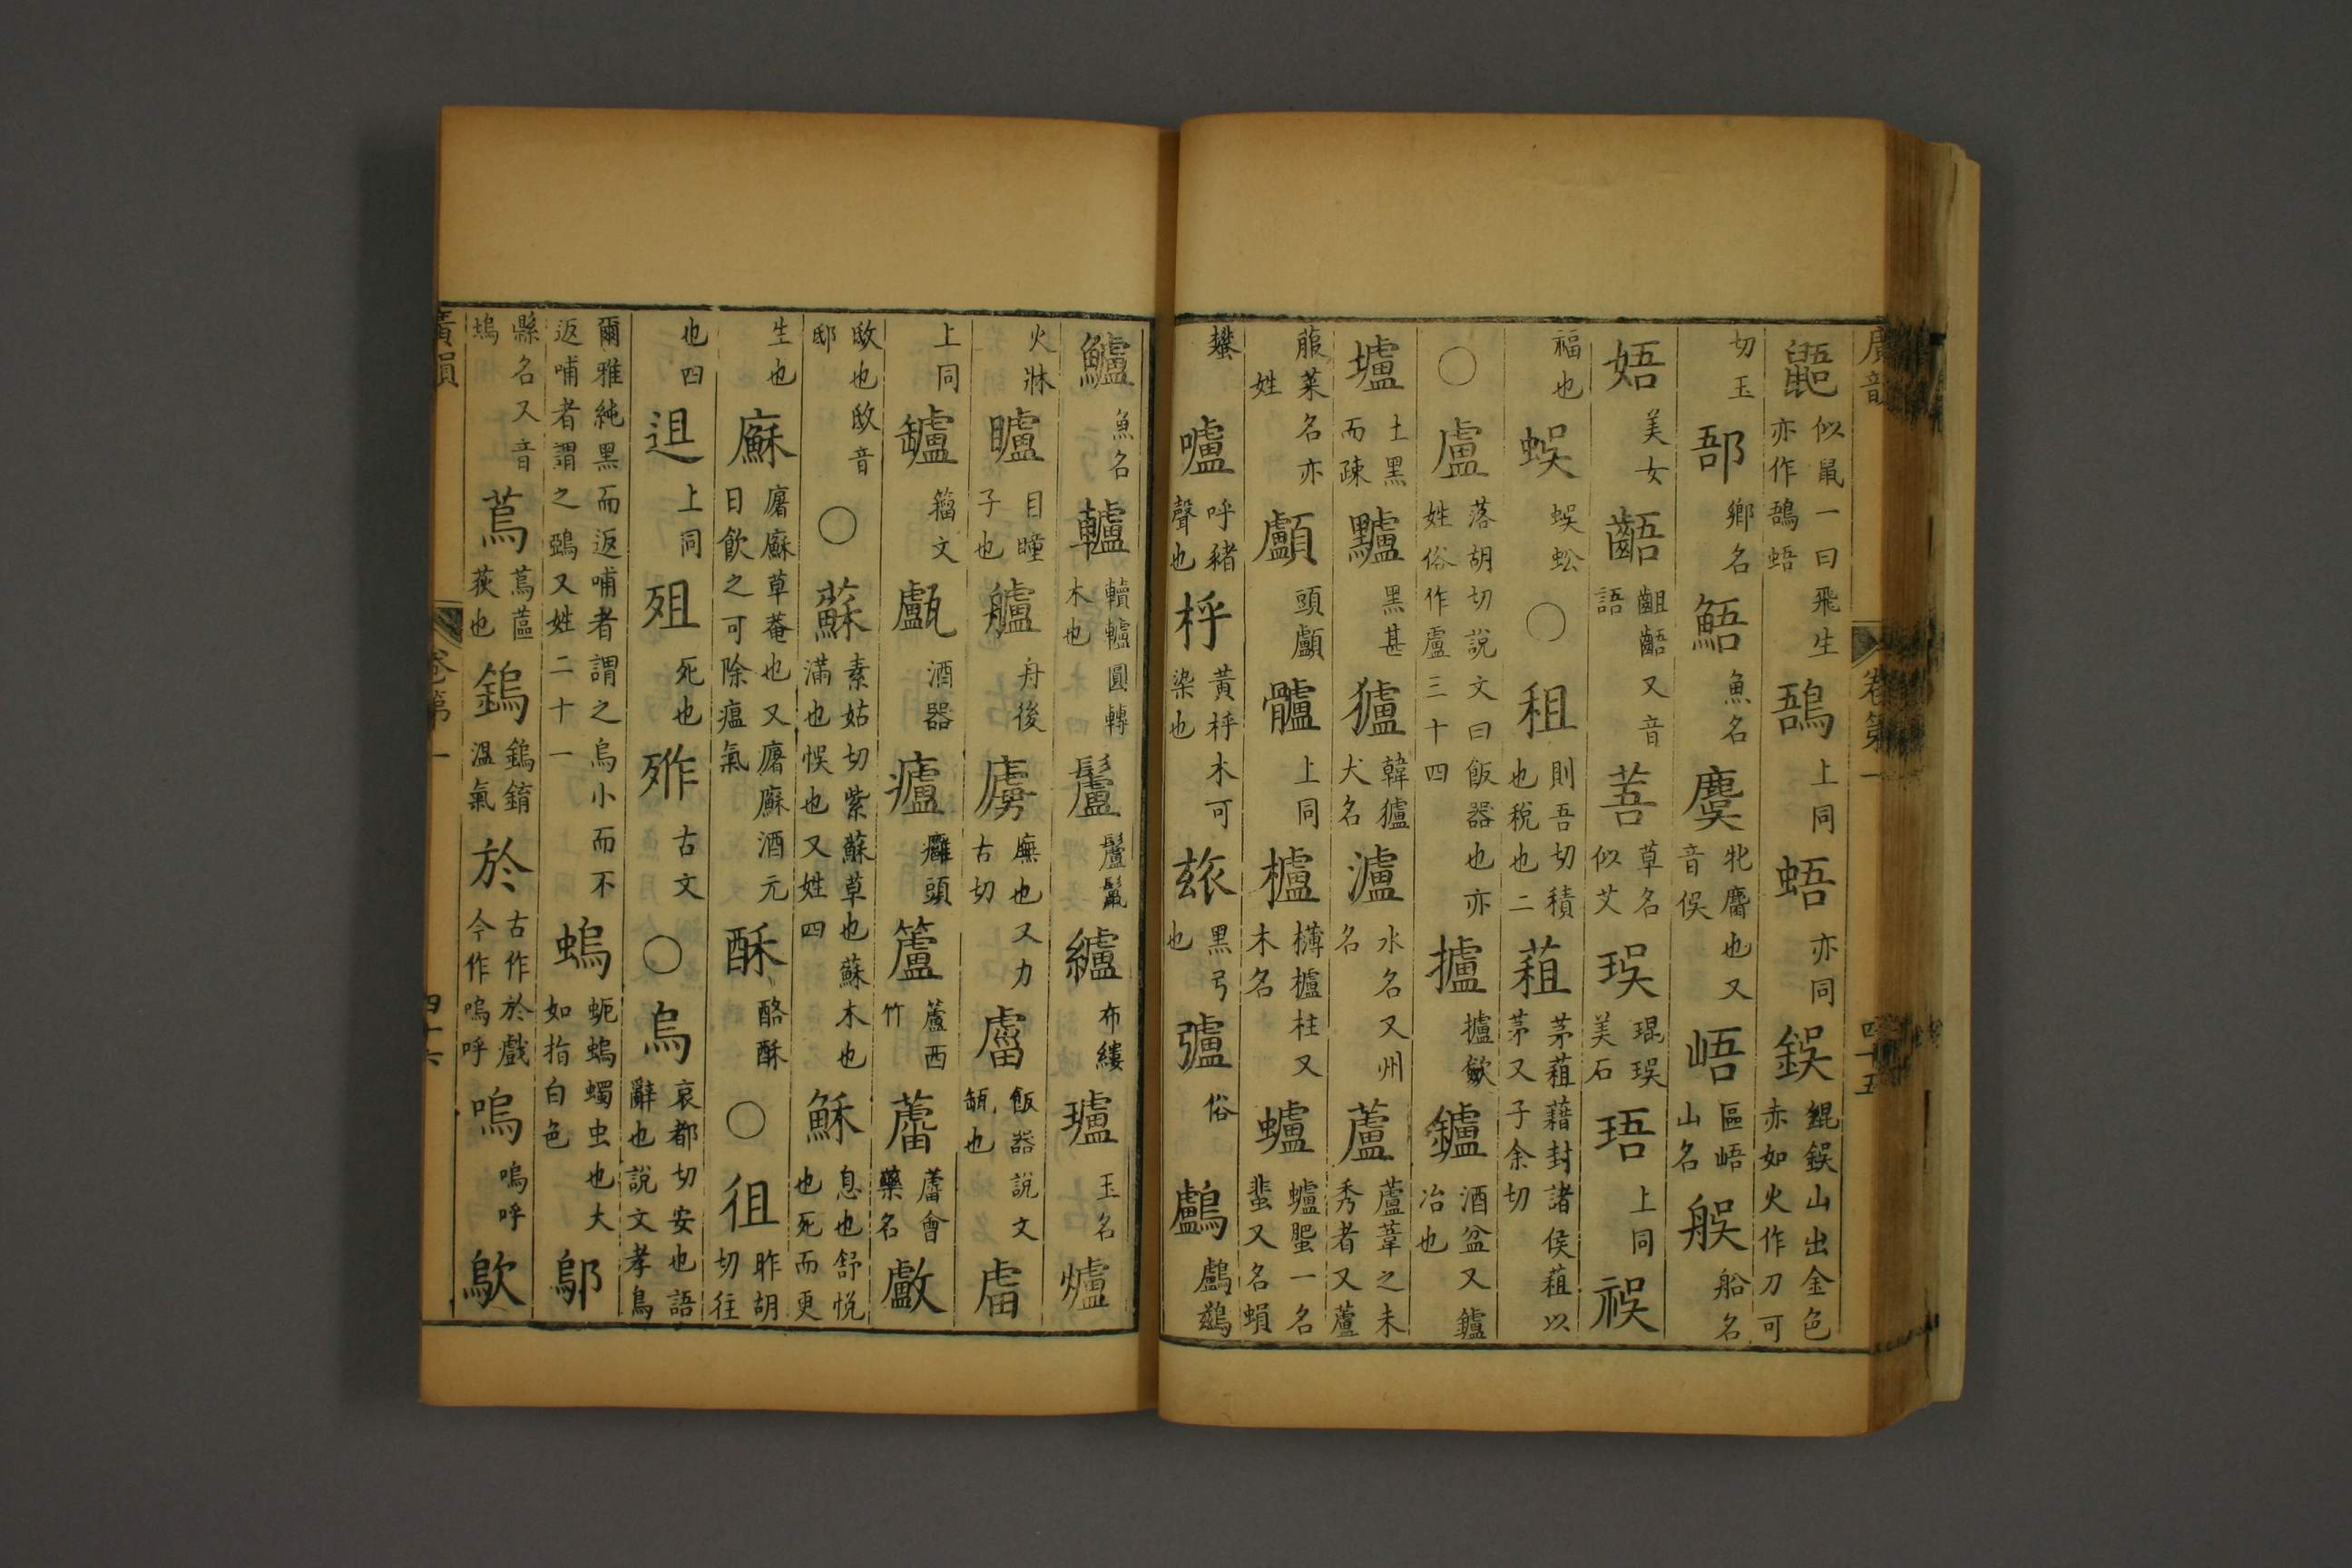 廣韻 卷第一 四十五
鼯似鼠一曰飛生亦作鵐䳇上同蜈亦同鋘錕鋘山出金色赤如火作刀可
切玉郚鄉名䱐魚名麌牝麕也又音俁峿㠊峿山名艅船名
娪美女齬齟齬又音語莟草名似艾珸琨珸美石珸上同䄎
福也蜈蜈蚣○租則吾切積也稅也二蒩茅蒩藉封諸侯蒩以茅又子余切
○盧落胡切說文曰飯器也亦姓俗作盧三十四攎攎歛鑪酒盆又鑪冶也
壚土黑而疎黸黑甚獹韓獹犬名瀘水名又州名蘆蘆葦之未秀者又蘆
菔菜名亦姓顱頭顱髗上同櫨欂櫨柱又木名蠦蠦蜰一名蜚又名蠈
蠜嚧呼豬聲也枦黃枦木可染也玈黑弓也㢚俗鸕鸕鷀
鱸魚名轤轒轤圓轉木也鬛鬛鬣纑布縷瓐玉名爐
火牀矑目瞳子也艫舟後虜廡也又力古切𤮐飯器說文缻也𤰈
上同罏籀文甗酒器瘻癰頭籚蘆西竹蘆蘆會藥名𢿛
歍也歍音邸○蘇素姑切紫蘇草也蘇木也滿也悮也又姓四穌息也舒悅也死而更
生也廯廜廯草菴也又廜廯酒元日飲之可除瘟氣酥酪酥○徂昨胡切往
也四迌上同殂死也㱜古文○烏哀都切安也語辭也說文孝鳥
爾雅純黑而返哺者謂之烏小而不返哺者謂之鵶又姓二十一螐蚅螐蠋虫也大如指白色鄔
縣名又音塢蔦蔦蓲荻也鎢鎢錥溫氣於古作於戲今作嗚呼嗚嗚呼歍
廣韻 卷第一 四十六